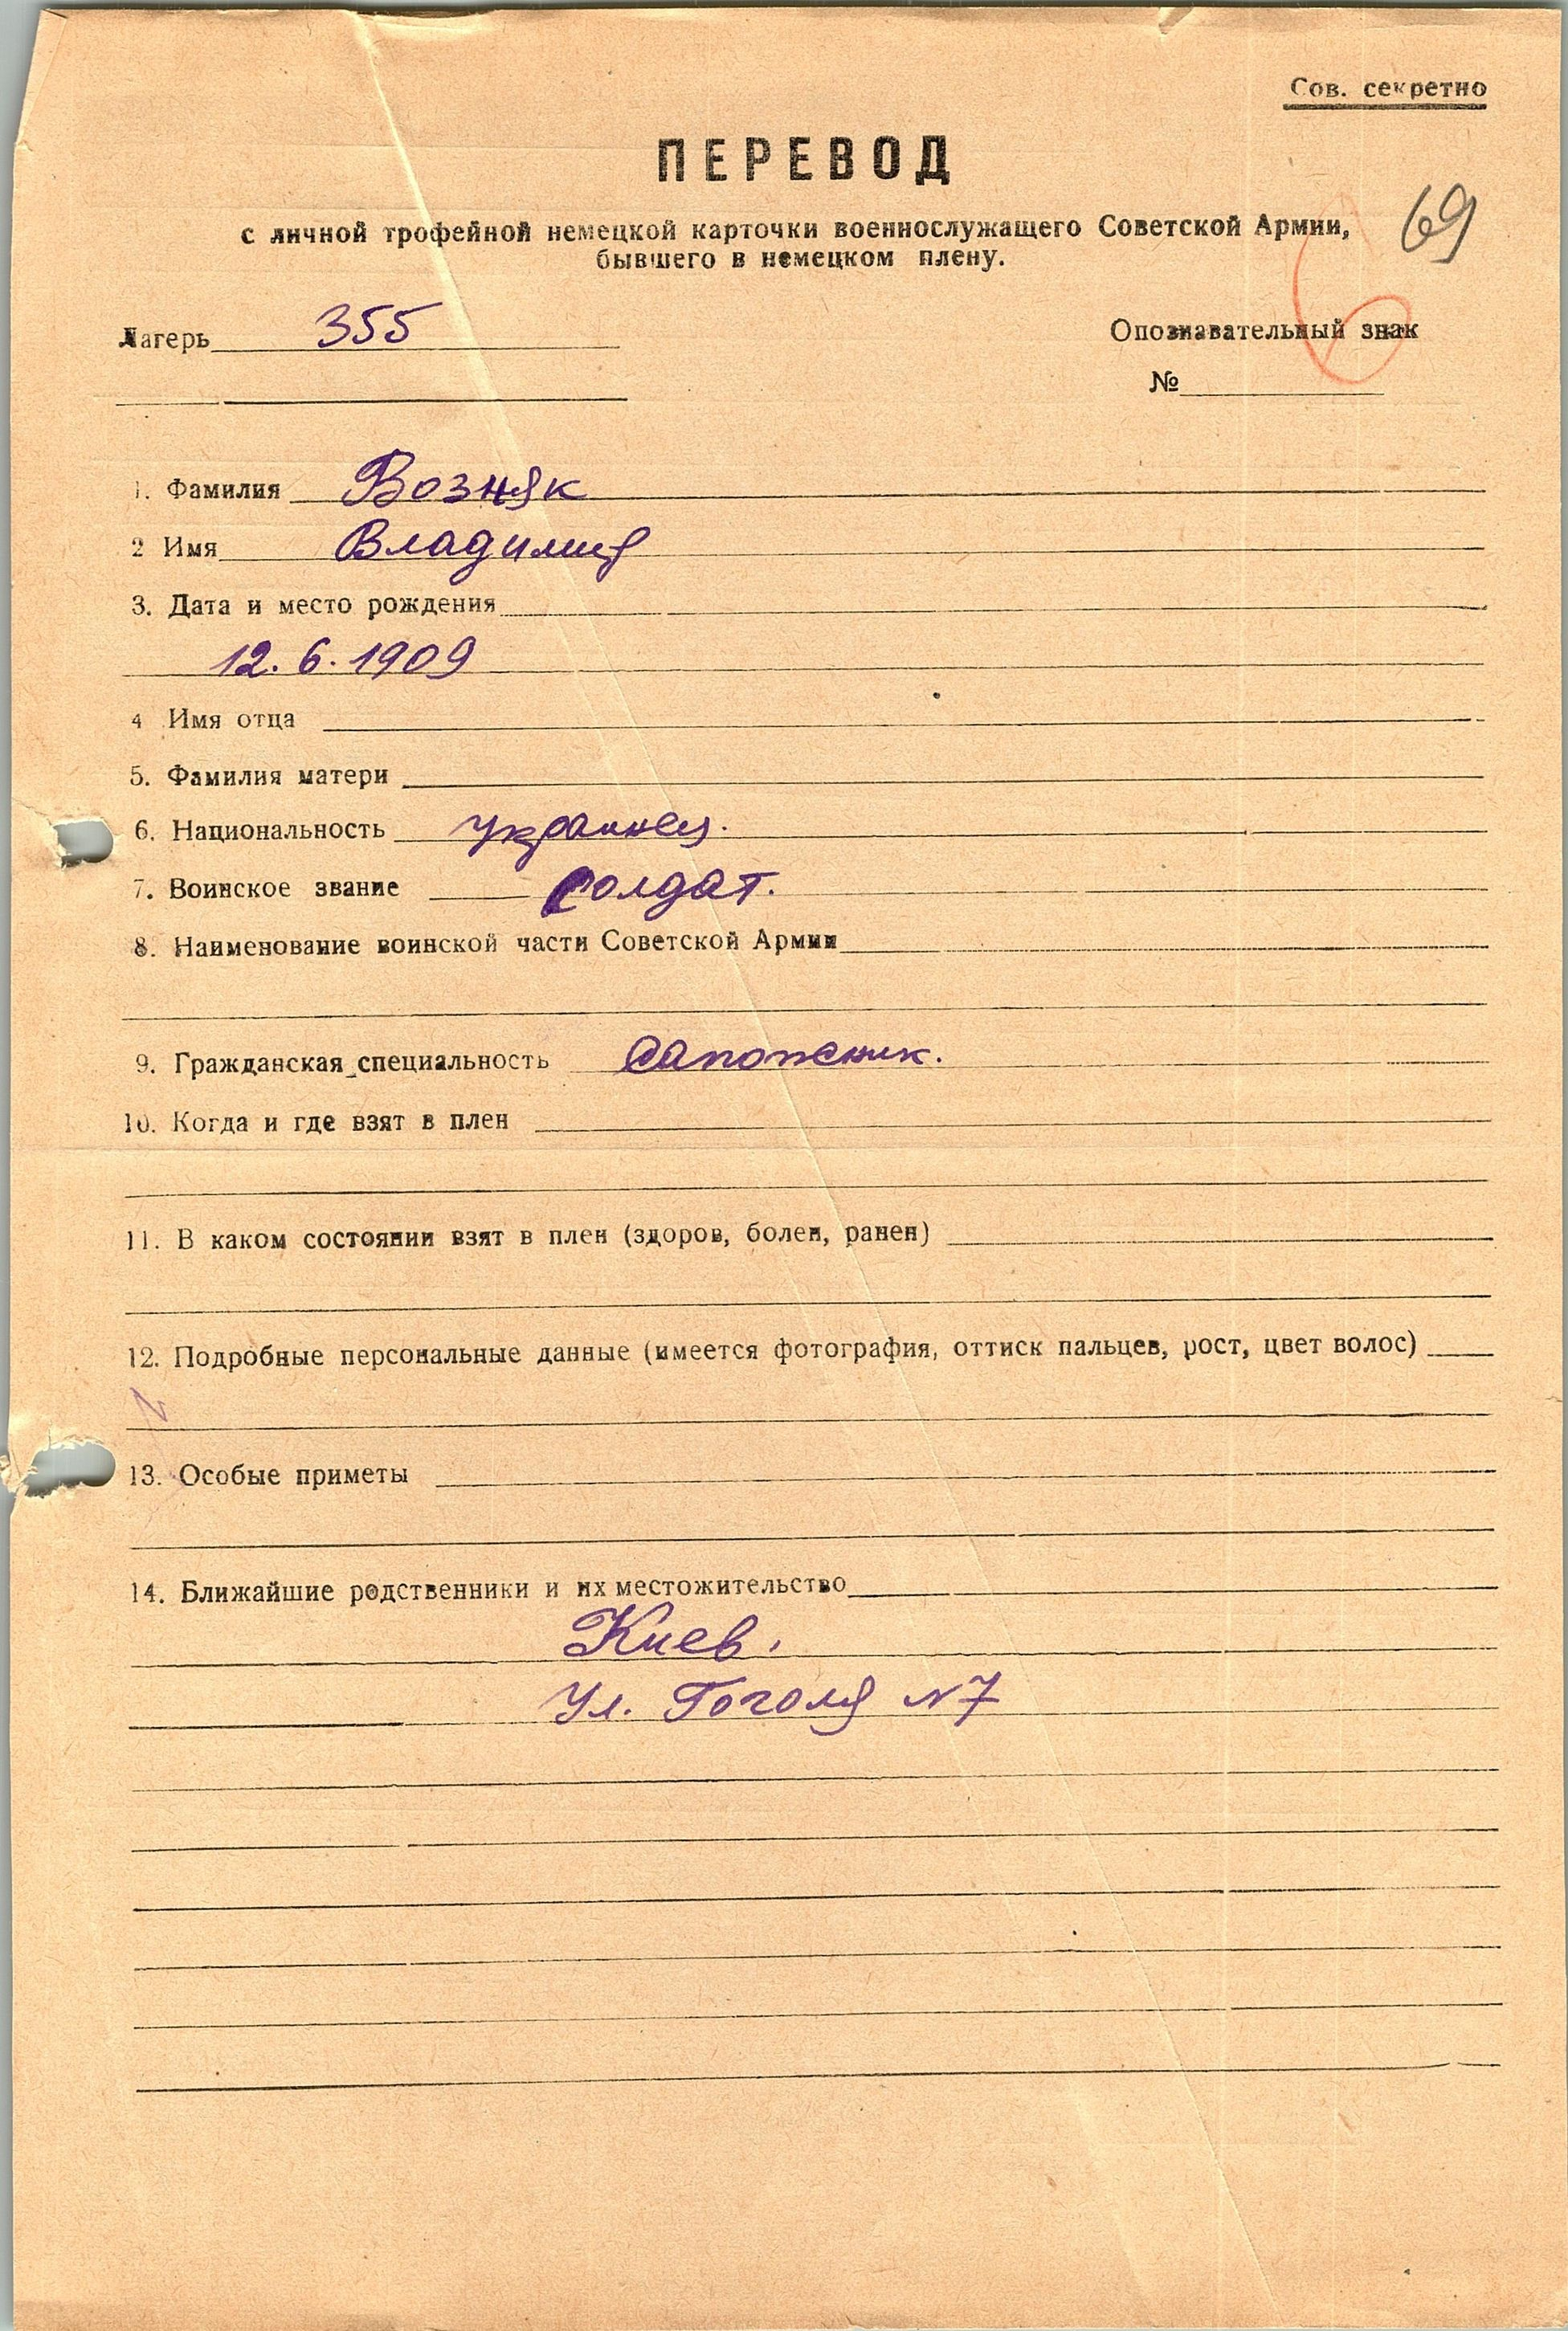 Сов. секретно
ПЕРЕВОД
69
с личной трофейной немецкой карточки военнослужащего Советской Армии,
бывшего в немецком плену.
Лагерь 355
Опознавательный знак
№
1. Фамилия Возняк
2 Имя Владимир
3. Дата и место рождения
12.6.1909
4 Имя отца
5. Фамилия матери
6. Национальность украинец.
7. Воинское звание солдат.
8. Наименование воинской части Советской Армии
9. Гражданская специальность сапожник.
10. Когда и где взят в плен
11. В каком состоянии взят в плен (здоров, болен, ранен)
12. Подробные персональные данные (имеется фотография, оттиск пальцев, рост, цвет волос)
N
13. Особые приметы
14. Ближайшие родственники и их местожительство
Киев.
Ул. Гоголя N7